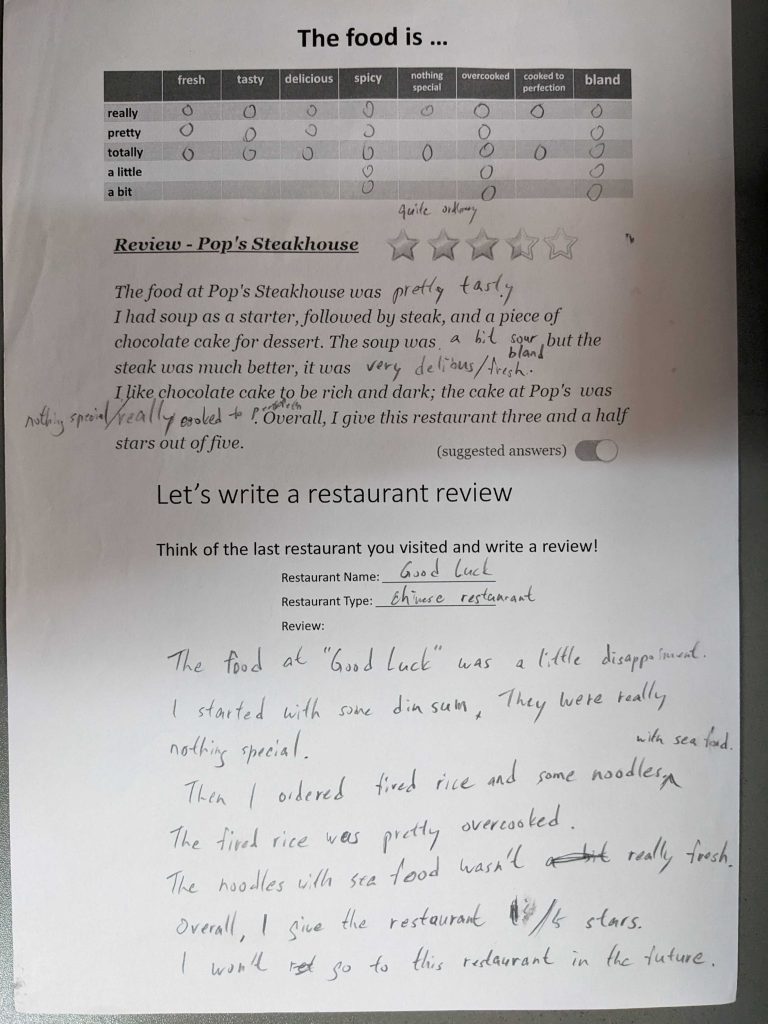 The food is ...
fresh tasty delicious spicy nothing special overcooked cooked to perfection bland
really O O O O O O O O
pretty O O O O O O
totally O O O O O O O O
a little O O O
a bit O O O
quite ordinary
Review - Pop's Steakhouse
The food at Pop's Steakhouse was pretty tasty
I had soup as a starter, followed by steak, and a piece of
chocolate cake for dessert. The soup was a bit sour but the
bland
steak was much better, it was very delibus/fresh.
I like chocolate cake to be rich and dark; the cake at Pop's was
nothing special/really cooked to . Overall, I give this restaurant three and a half
stars out of five.
(suggested answers)
Let's write a restaurant review
Think of the last restaurant you visited and write a review!
Restaurant Name: Good Luck
Restaurant Type: Chinese restaurant
Review:
The food at "Good Luck" was a little
I started with some dim sum, They were really
nothing special.
with sea food.
Then I ordered fired rice and some noodles
The fired rice was pretty overcooked.
The noodles with sea food wasn't a bit really fresh.
Overall, I give the restaurant /5 stars.
I won't go to this restaurant in the future.